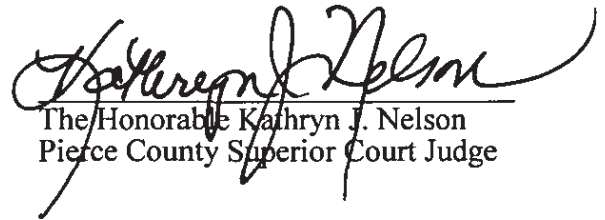 Kathryn J. Nelson
The Honorable Kathryn J. Nelson
Pierce County Superior Court Judge